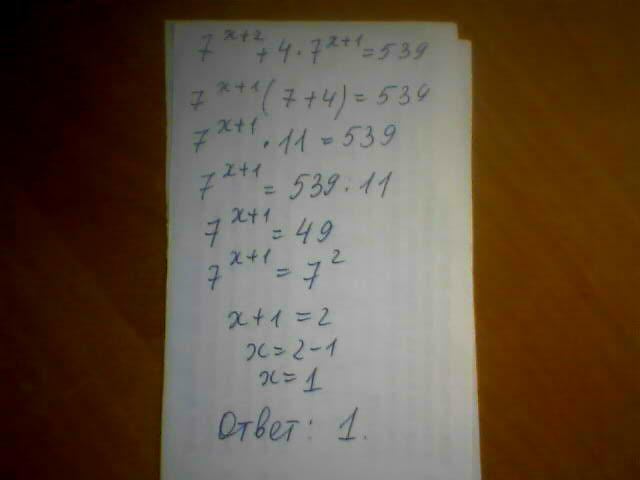 7^{x+2} + 4 · 7^{x+1} = 539
7^{x+1} (7 + 4) = 539
7^{x+1} · 11 = 539
7^{x+1} = 539 · 11
7^{x+1} = 49
7^{x+1} = 7^2
x + 1 = 2
x = 2 - 1
x = 1
Ответ: 1.